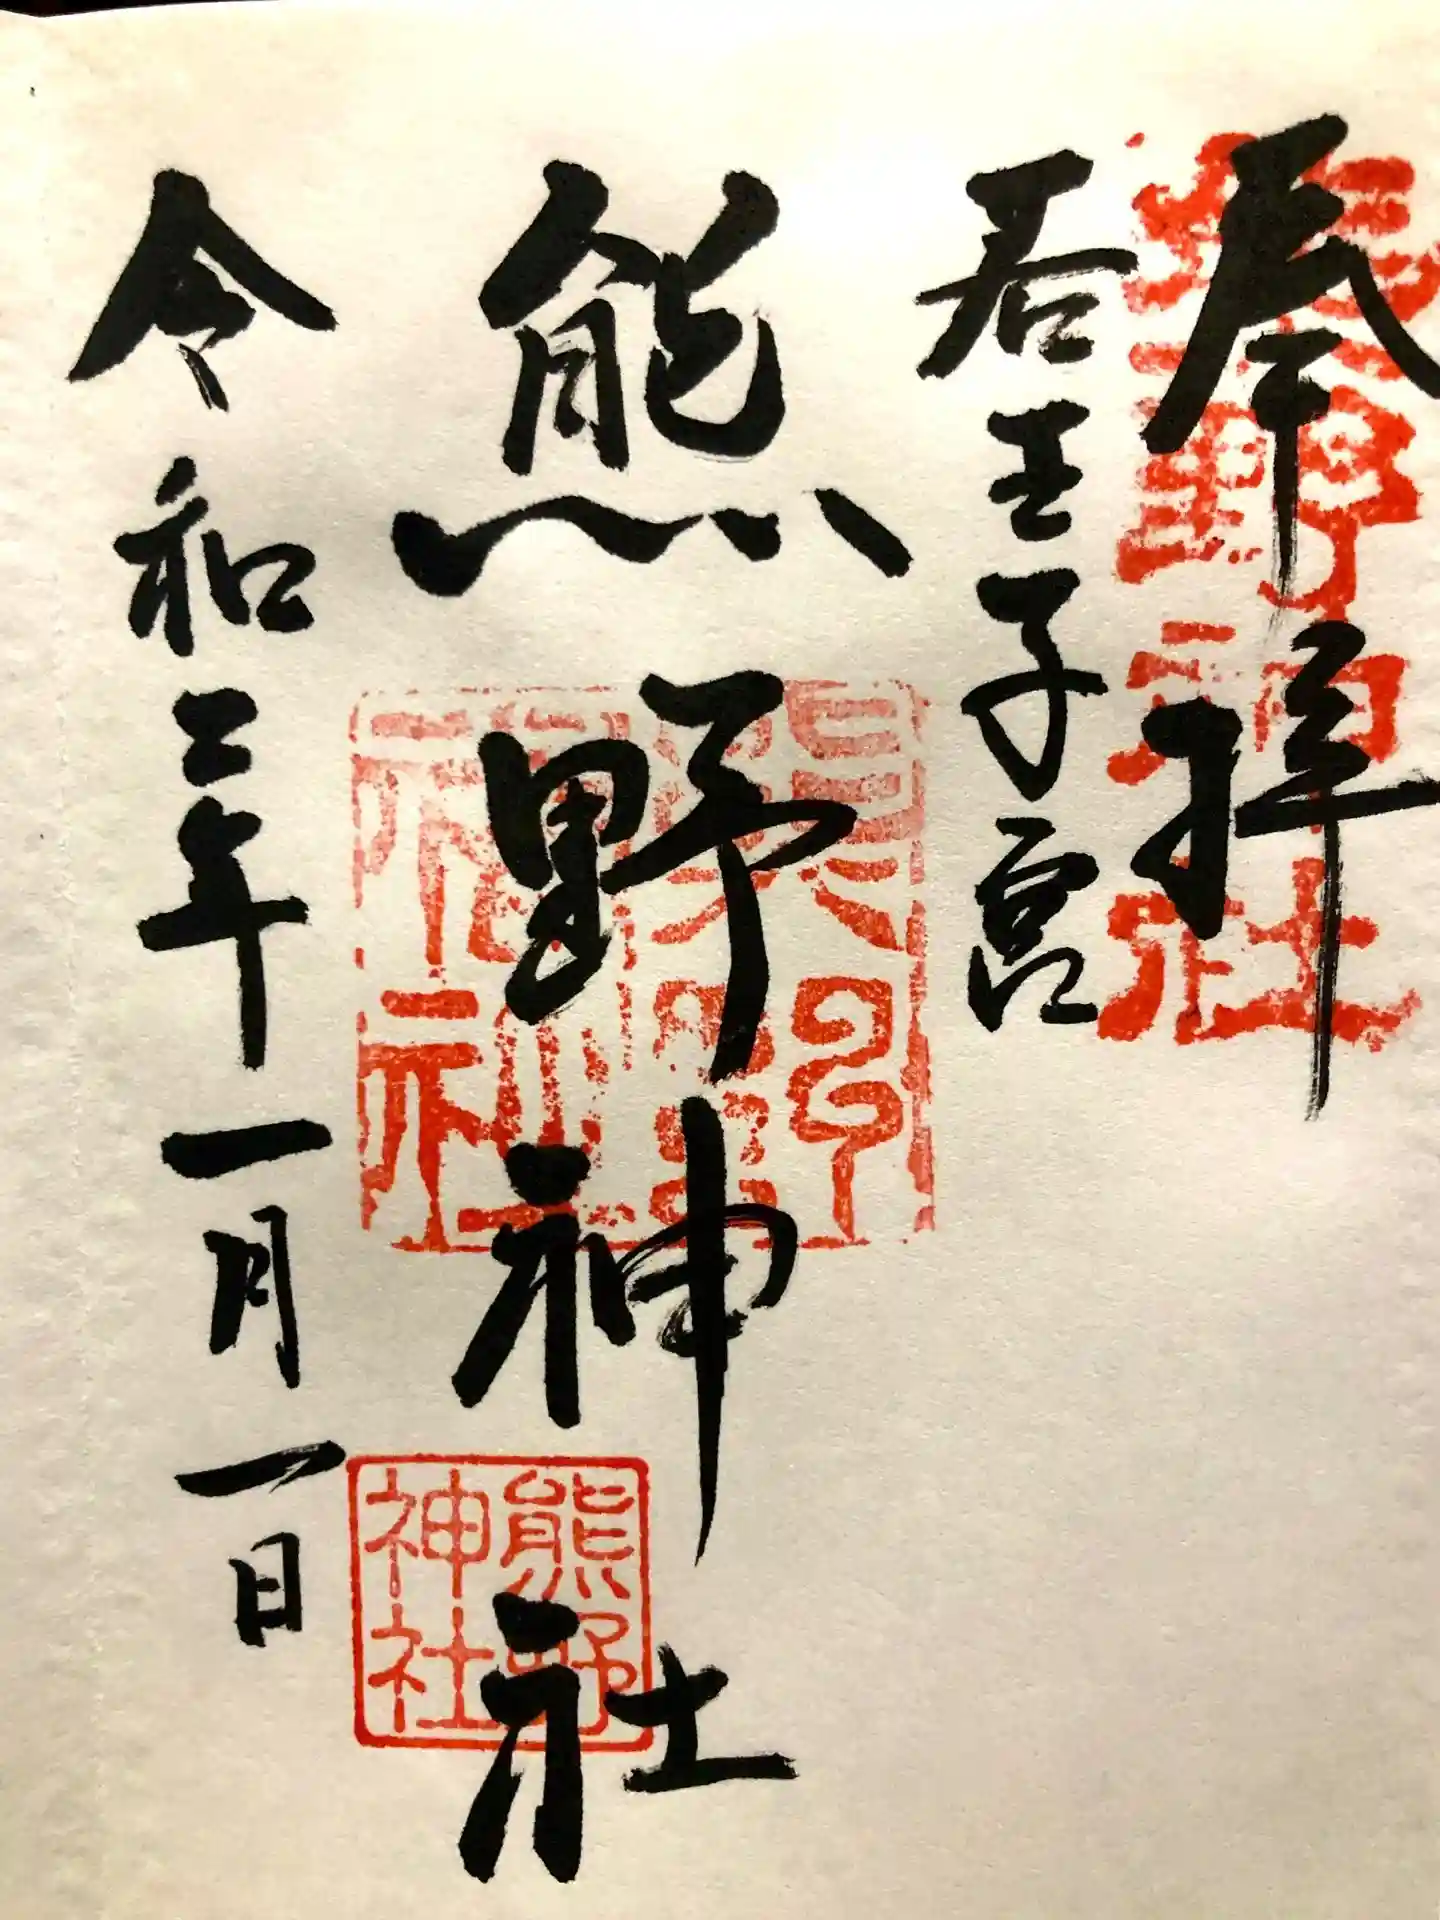 奉拝
熊野神社
若王子宮
熊野神社
熊野神社
令和三年一月一日